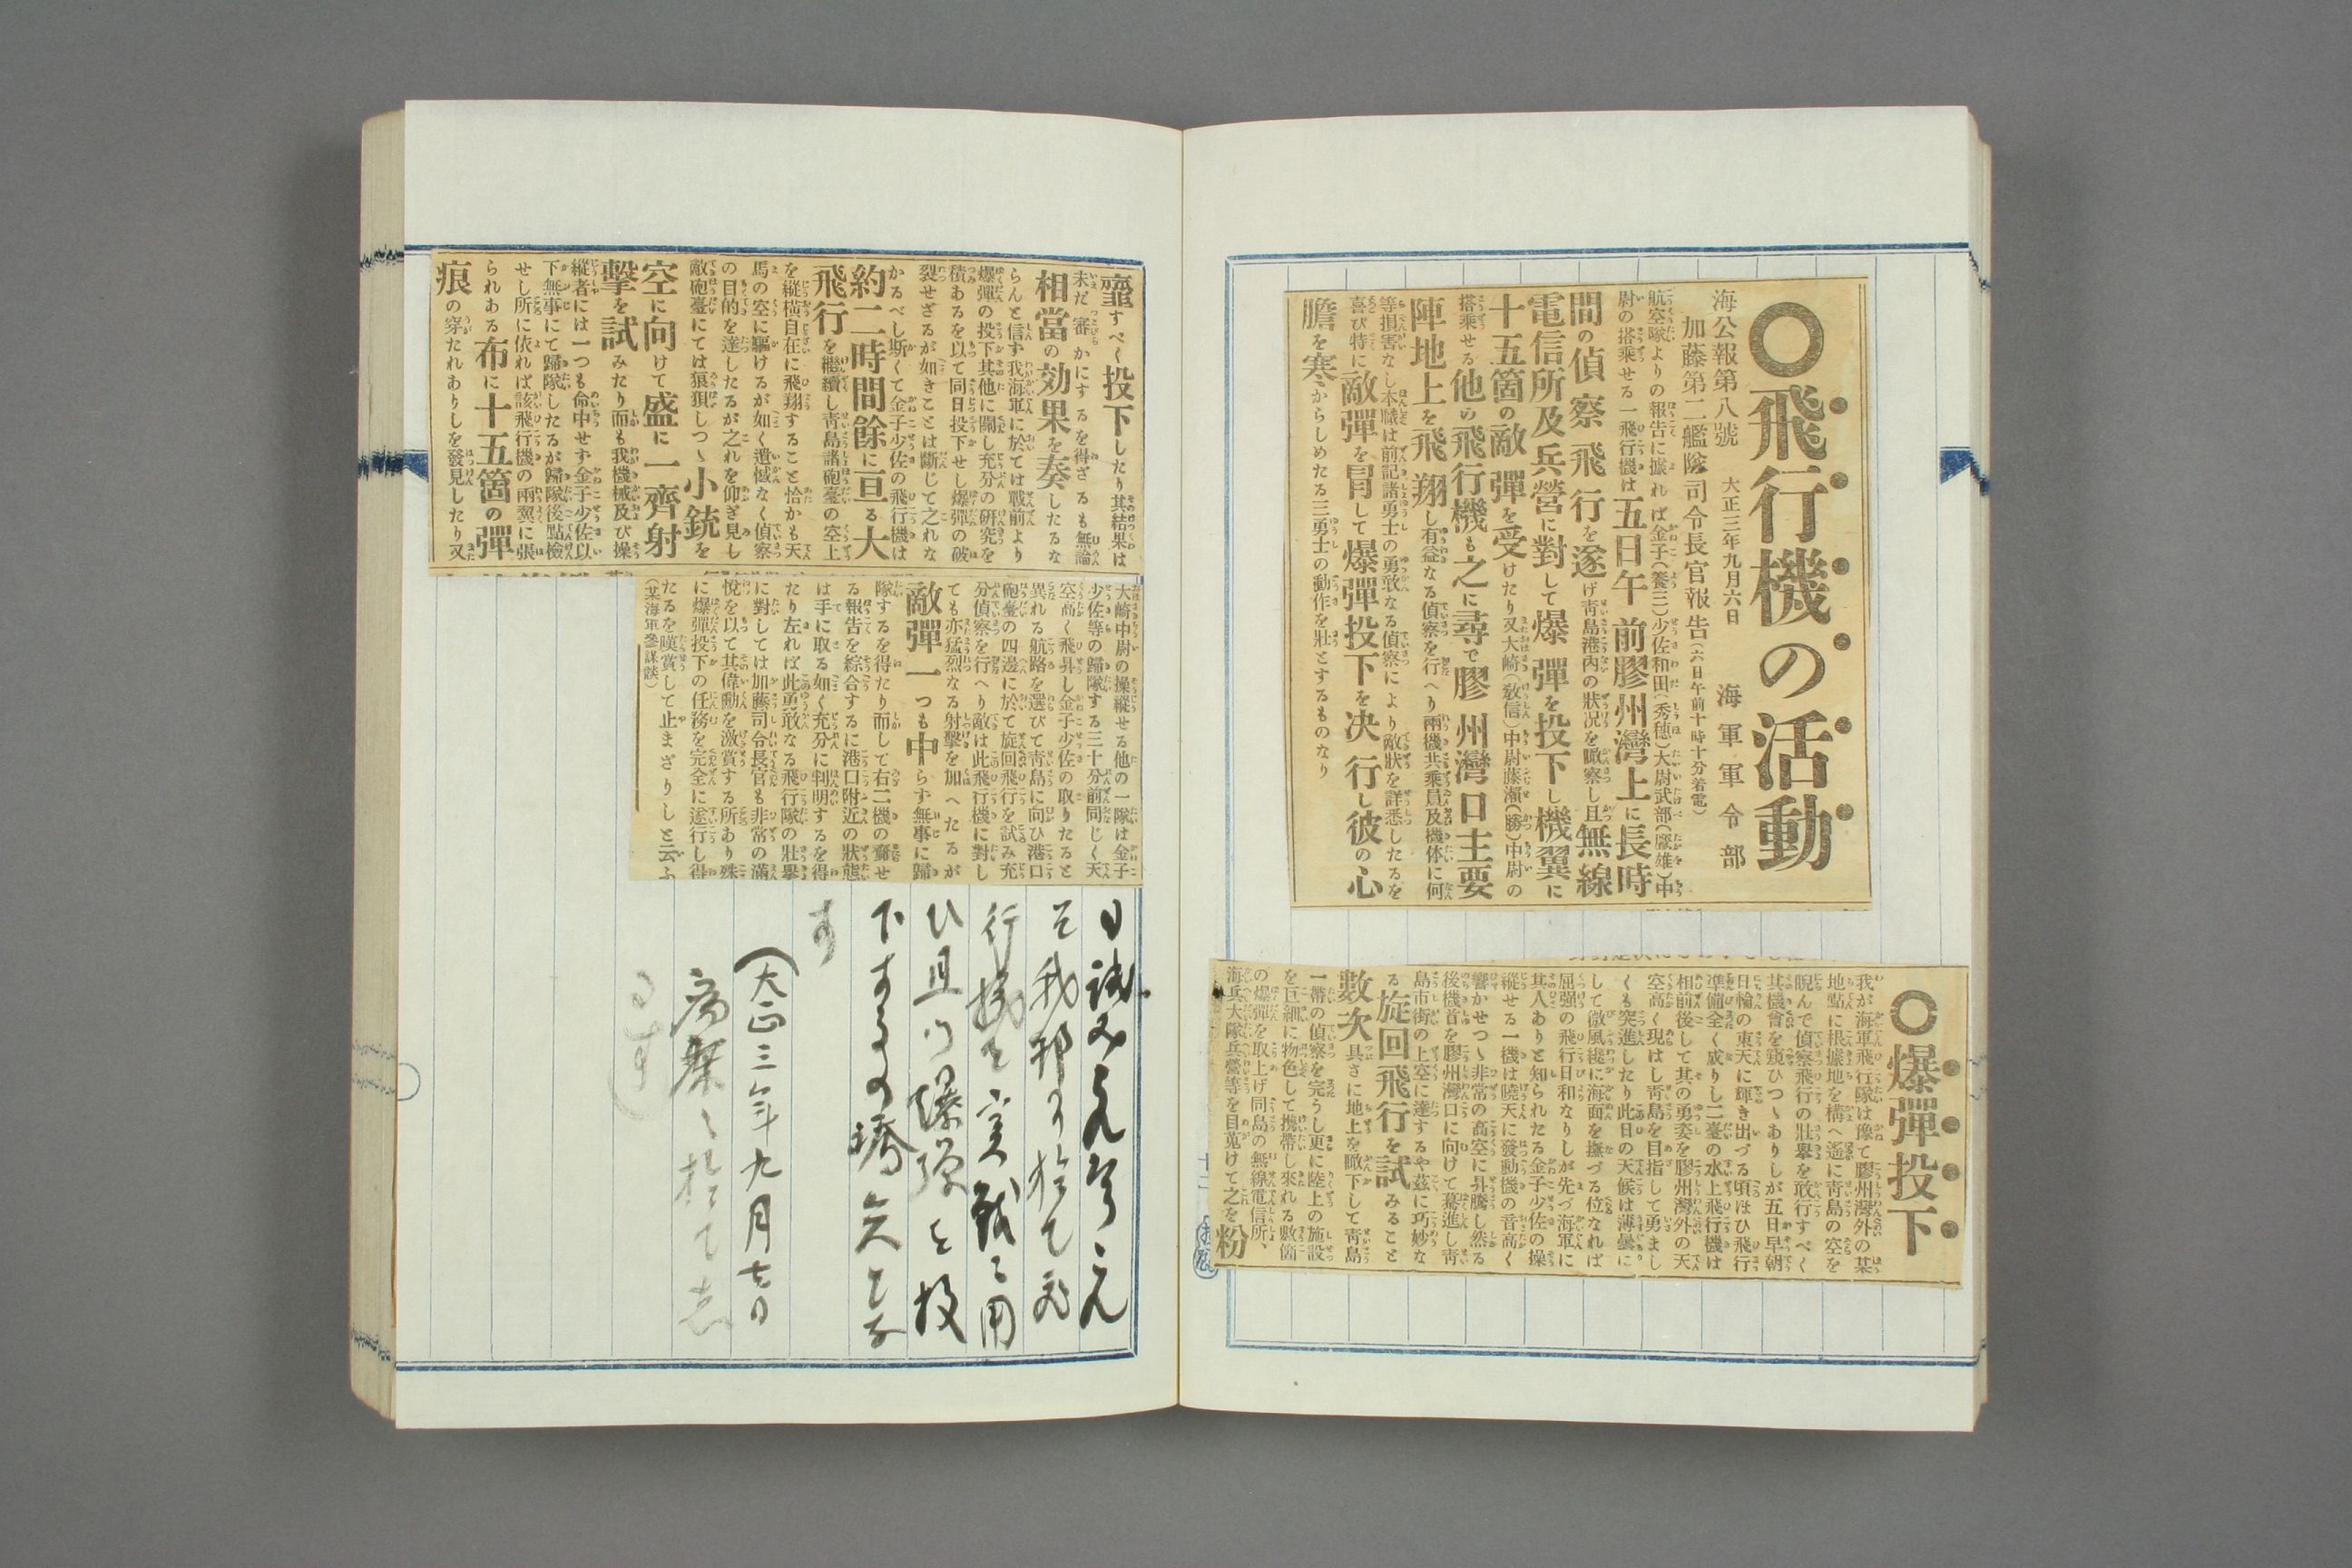 〇飛行機の活動
海公報第八號　大正三年九月六日　海軍軍令部
加藤第二艦隊司令長官報告(六日午前十時十分着電)
航空隊よりの報告に據れば金子(養三)少佐和田(秀穗)大尉武部(鷹雄)中
尉の搭乘せる一飛行機は五日午前膠州灣上に長時
間の偵察飛行を遂げ靑島港內の狀況を瞰察し且無線
電信所及兵營に對して爆彈を投下し機翼に
十五箇の敵彈を受けたり又大崎(敎信)中尉藤瀨(勝)中尉の
搭乘せる他の飛行機も之に尋で膠州灣口主要
陣地上を飛翔し有益なる偵察を行へり兩機共乘員及機体に何
等損害なし本職は前記諸勇士の勇敢なる偵察により敵狀を詳悉したるを
喜び特に敵彈を冒して爆彈投下を决行し彼の心
膽を寒からしめたる三勇士の動作を壯とするものなり
〇爆彈投下
我が海軍飛行隊は豫て膠州灣外の某
地點に根據地を構へ遙に靑島の空を
睨んで偵察飛行の壯擧を敢行すべく
其機會を窺ひつゝありしが五日早朝
日輪の東天に輝き出づる頃ほひ飛行
準備全く成りし二臺の水上飛行機は
相前後して其の勇姿を膠州灣外の天
空高く現はし靑島を目指して勇まし
くも突進したり此日の天候は薄曇に
して微風縷に海面を撫づる位なれば
屈强の飛行日和なりしが先づ海軍に
其人ありと知られたる金子少佐の操
縱せる一機は曉天に發動機の音高く
響かせつゝ非常の高空に昇騰し然る
後機首を膠州灣口に向けて驀進し靑
島市街の上空に達するや茲に巧妙な
る旋回飛行を試みること
數次具さに地上を瞰下して靑島
一帶の偵察を完うし更に陸上の施設
を巨細に物色して携帶し來れる數箇
の爆彈を取上げ同島の無線電信所、
海兵大隊兵營等を目蒐けて之を粉
虀すべく投下したり其結果は
未だ審かにするを得ざるも無論
相當の効果を奏したるな
らんと信ず我海軍に於ては戰前より
爆彈の投下其他に關し充分の硏究を
積あるを以て同日投下せし爆彈の破
裂せざるが如きことは斷じて之れな
かるべし斯くて金子少佐の飛行機は
約二時間餘に亘る大
飛行を繼續し靑島諸砲臺の空上
を縱橫自在に飛翔すること恰かも天
馬の空に驅けるが如く遺憾なく偵察
の目的を達したるが之れを仰ぎ見し
敵砲臺にては狼狽しつゝ小銃を
空に向けて盛に一齊射
擊を試みたり而も我機械及び操
縱者には一つも命中せず金子少佐以
下無事にて歸隊したるが歸隊後點檢
せし所に依れば該飛行機の兩翼に張
られある布に十五箇の彈
痕の穿たれありしを發見したり又
大崎中尉の操縱せる他の一隊は金子
少佐等の歸隊する三十分前同じく天
空高く飛昇し金子少佐の取りたると
異れる航路を選びて靑島に向ひ港口
砲臺の四邊に於て旋回飛行を試み充
分偵察を行へり敵は此飛行機に對し
ても亦猛烈なる射擊を加へたるが
敵彈一つも中らず無事に歸
隊するを得たり而して右二機の齎せ
る報告を綜合するに港口附近の狀態
は手に取る如く充分に判明するを得
たり左れば此勇敢なる飛行隊の壯擧
に對しては加藤司令長官も非常の滿
悅を以て其偉勳を激賞する所あり殊
に爆彈投下の任務を完全に遂行し得
たるを嘆賞して止まざりしと云ふ
(某海軍參謀談)
そ我邦に於て飛
行機を実戰に用
ひ且つ爆彈を投
下するの嚆矢とな
す
(大正三年九月七日
病褥に於て志
るす)